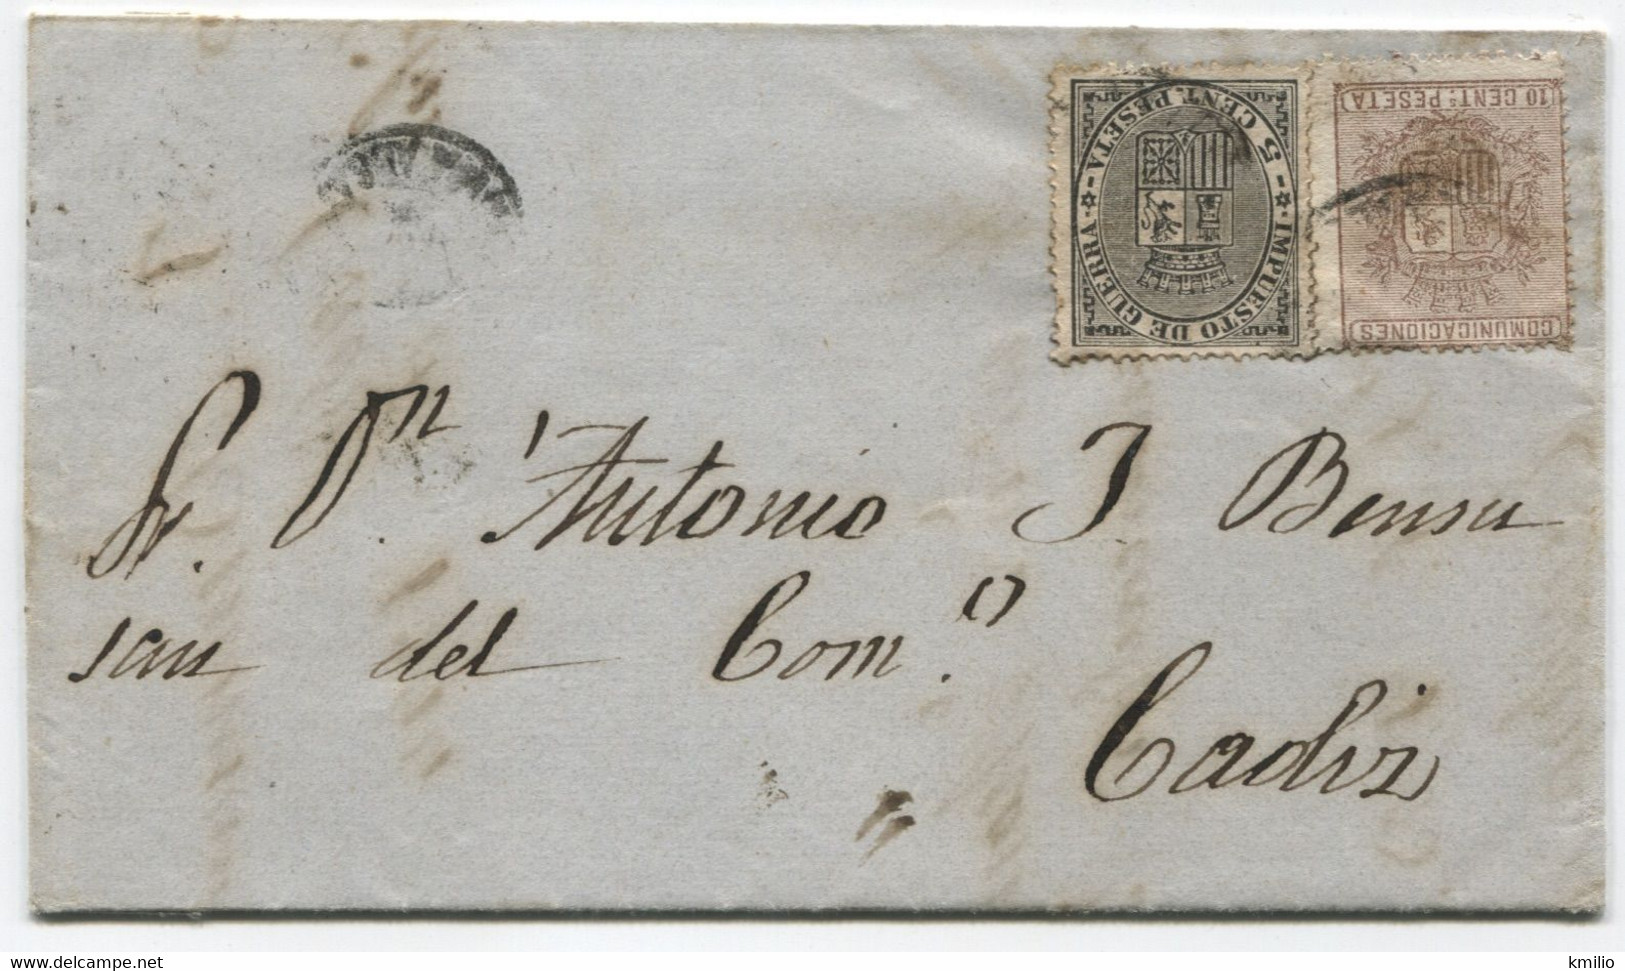 IMPUESTO DE GUERRA
5 CENT. PESETA
COMUNICACIONES
10 CENT.s PESETA
Sr. Dn Antonio J. Bensu
san del Com.o
Cadiz
www.delcampe.net
kmilio